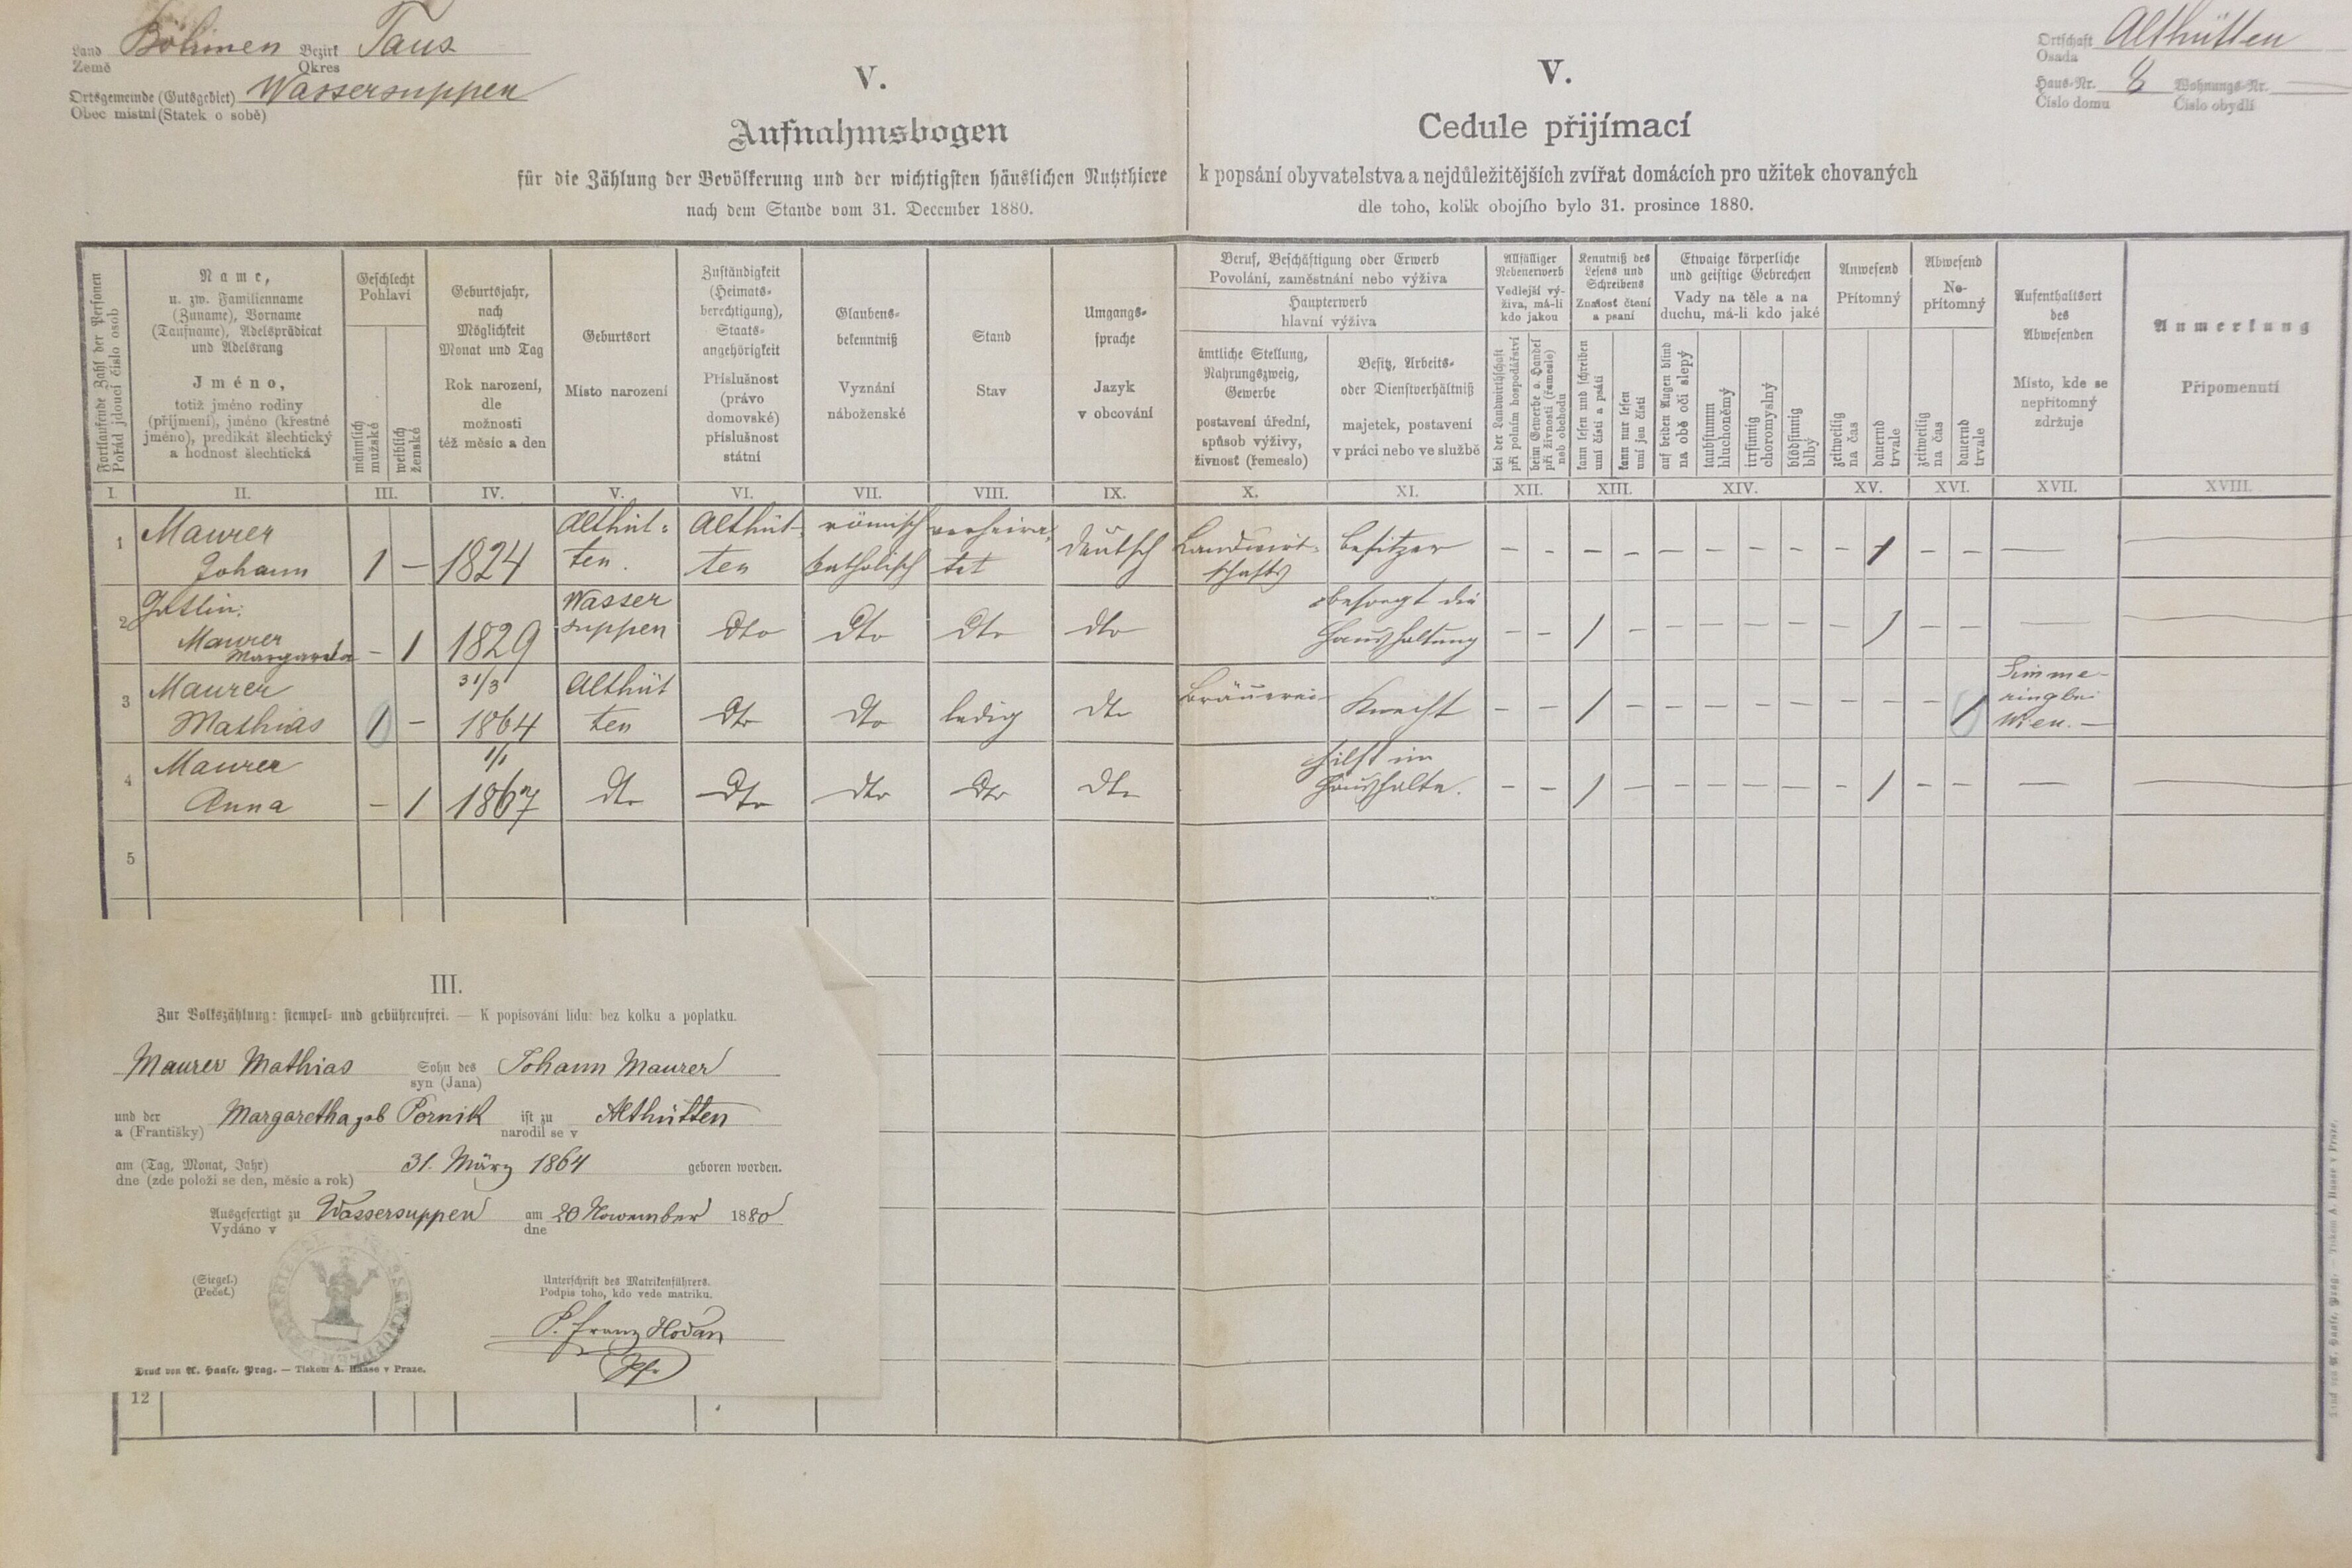 Land Böhmen Bezirk Taus
Země Okres
Ortsgemeinde (Gutsgebiet) Wassersuppen
Obec místní (Statek o sobě)
Ortschaft Althütten
Osada
Haus-Nr. 8 Wohnungs-Nr. —
Číslo domu Číslo obydlí
V.
Aufnahmsbogen
für die Zählung der Bevölkerung und der wichtigsten häuslichen Nutzthiere
nach dem Stande vom 31. December 1880.
V.
Cedule přijímací
k popsání obyvatelstva a nejdůležitějších zvířat domácích pro užitek chovaných
dle toho, kolik obojího bylo 31. prosince 1880.
Fortlaufende Zahl der Personen
Pořád jdoucí číslo osob
Name,
u. zw. Familienname
(Zuname), Vorname
(Taufname), Adelsprädicat
und Adelsrang
Jméno,
totiž jméno rodiny
(příjmení), jméno (křestné
jméno), predikát šlechtický
a hodnost šlechtická
Geschlecht
Pohlaví
männlich
mužské
weiblich
ženské
Geburtsjahr,
nach
Möglichkeit
Monat und Tag
Rok narození,
dle
možnosti
též měsíc a den
Geburtsort
Místo narození
Zuständigkeit
(Heimats-
berechtigung),
Staats-
angehörigkeit
Příslušnost
(právo
domovské)
příslušnost
státní
Glaubens-
bekenntniß
Vyznání
náboženské
Stand
Stav
Umgangs-
sprache
Jazyk
v obcování
Beruf, Beschäftigung oder Erwerb
Povolání, zaměstnání nebo výživa
Haupterwerb
hlavní výživa
ämtliche Stellung,
Nahrungszweig,
Gewerbe
postavení úřední,
spůsob výživy,
živnost (řemeslo)
Besitz, Arbeits-
oder Dienstverhältniß
majetek, postavení
v práci nebo ve službě
Allfälliger
Nebenerwerb
Vedlejší vý-
živa, má-li
kdo jakou
bei der Landwirthschaft
při polním hospodářství
beim Gewerbe o. Handel
při živnosti (řemesle)
neb obchodu
Kenntniß des
Lesens und
Schreibens
Znalost čtení
a psaní
kann lesen und schreiben
umí čísti a psáti
kann nur lesen
umí jen čísti
Etwaige körperliche
und geistige Gebrechen
Vady na těle a na
duchu, má-li kdo jaké
auf beiden Augen blind
na obě oči slepý
taubstumm
hluchoněmý
irrsinnig
choromyslný
blödsinnig
blbý
Anwesend
Přítomný
zeitweilig
na čas
dauernd
trvale
Abwesend
Ne-
přítomný
zeitweilig
na čas
dauernd
trvale
Aufenthaltsort
des
Abwesenden
Místo, kde se
nepřítomný
zdržuje
Anmerkung
Připomenutí
I. II. III. IV. V. VI. VII. VIII. IX. X. XI. XII. XIII. XIV. XV. XVI. XVII. XVIII.
1 Maurer Althüt= Althüt- römisch verheira-
Johann 1 — 1824 ten. ten katholisch tet deutsch Landwirt- Besitzer — — — — — — — — — 1 — — —
schaft
2 Gattin: Wasser besorgt die
Maurer suppen dto dto dto dto Haushaltung — — 1 — — — — — — 1 — — —
Margareta — 1 1829
3 Maurer 31/3 Althüt Bräuerei- Simme-
Mathias 1 — 1864 ten dto dto ledig dto Knecht — — 1 — — — — — — — — 1 ring bei
Wien. —
4 Maurer 1/1 hilft im
Anna — 1 1867 dto dto dto dto dto Haushalte. — — 1 — — — — — — 1 — — —
5
III.
Zur Volkszählung: stempel- und gebührenfrei. — K popisování lidu: bez kolku a poplatku.
Maurer Mathias Sohn des Johann Maurer
syn (Jana)
und der Margaretha geb Pornik ist zu Althütten
a (Františky) narodil se v
am (Tag, Monat, Jahr) 31. März 1864 geboren worden.
dne (zde položí se den, měsíc a rok)
Ausgefertigt zu Wassersuppen am 20 November 1880
Vydáno v dne
(Siegel.)
(Pečeť.)
Unterschrift des Matrikenführers.
Podpis toho, kdo vede matriku.
P. Franz Hodan
Druck von A. Haase, Prag. — Tiskem A. Haase v Praze.
12
Druck von A. Haase, Prag. — Tiskem A. Haase v Praze.